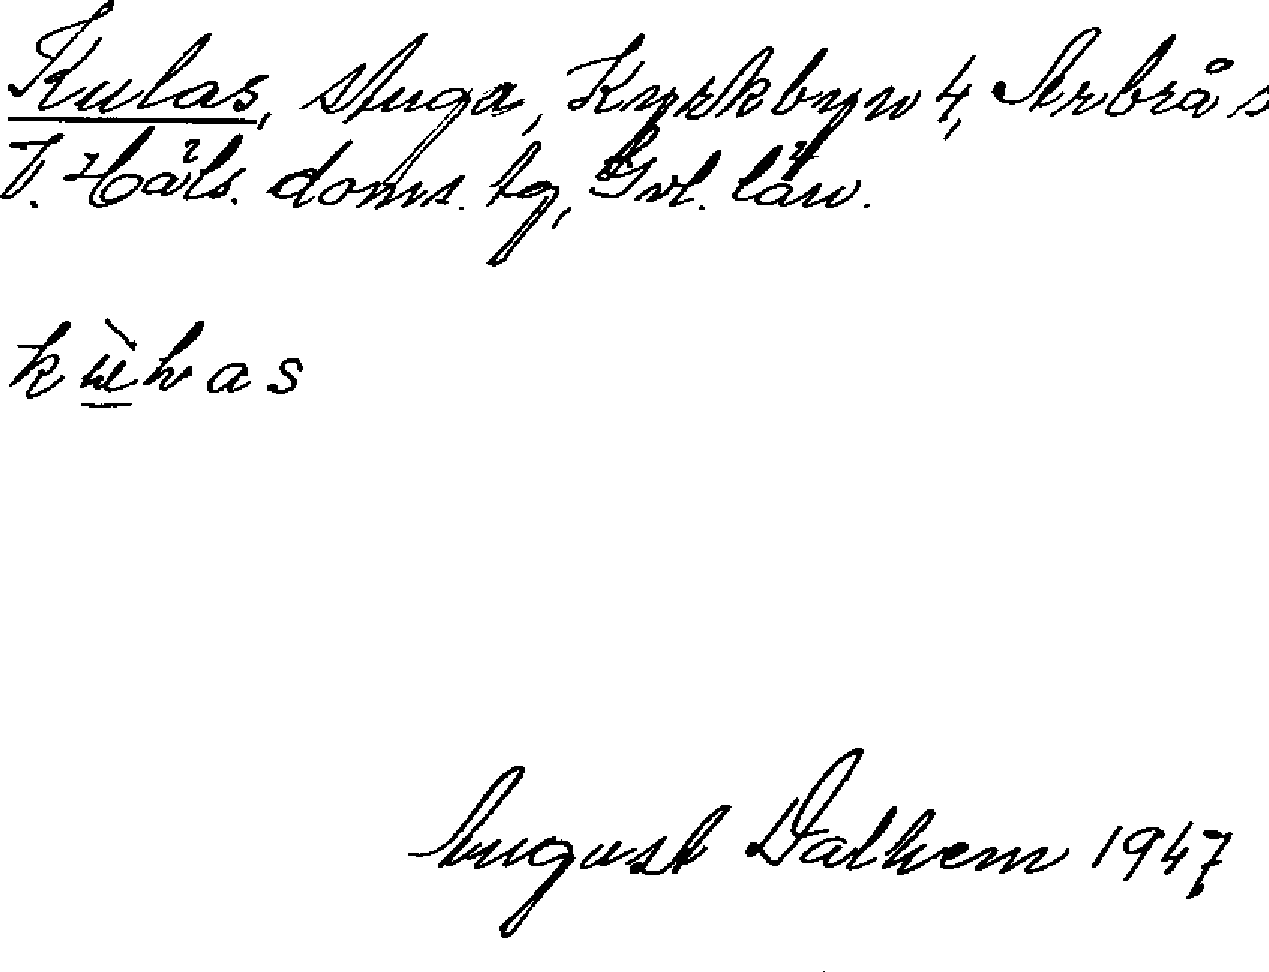 Kulas, stuga, Kyrkbyn 4, Arbrå s
V. Häls. doms. tg, Gvl. län.
August Dalhem 1947